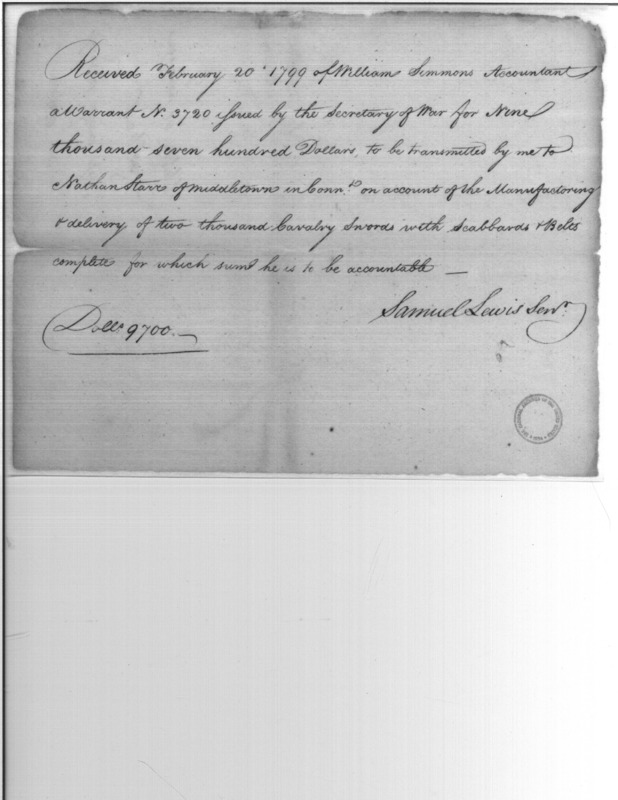 Received February 20th 1799 of William Simmons Accountant
a Warrant No. 3720 issued by the Secretary of War for Nine
thousand seven hundred Dollars, to be transmitted by me to
Nathan Starr of Middletown in Conn.t on account of the Manufactoring
& delivery of two thousand Cavalry Swords with Scabbards & Belts
complete for which sum he is to be accountable —
Samuel Lewis Senr.
Dolls. 9700.—